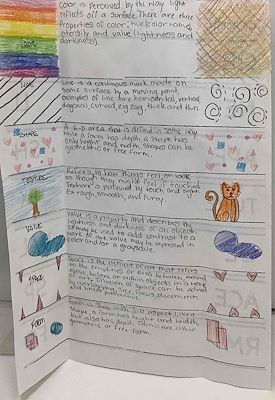 color is perceived by the way light
reflects off a surface. There are three
properties of color: hue (color name),
intensity and value (lightness and
darkness).
COLOR
Line is a continous mark made on
some surface by a moving point,
examples of line are horizontal, vertical,
diagonal, curved, zig zag, thick and thin
SHAPE
A 2-D area that is defined in some way.
While a form has depth, a shape has
only height and width, shapes can be
geometric or free-form.
TEXTURE
Refers to how things feel, or look
as though they might feel if touched.
Texture is perceived by touch and sight.
Ex: rough, smooth, and furry.
VALUE
Value is a property and describes the
lightness and darkness of an object.
It may be used to add contrast to a
work of art. Value may be expressed in
color and/or a grayscale.
SPACE
Space is the element of art that refers
to the emptiness or area between, around,
above, below, or within objects in a work
of art. Illusion of space can be
by overlapping, size, focus, placement,
and perspective.
Form
Form is shape with 3-D aspect. Like
shape, a form has height and width,
but also has depth. Forms are either
geometric or free form.